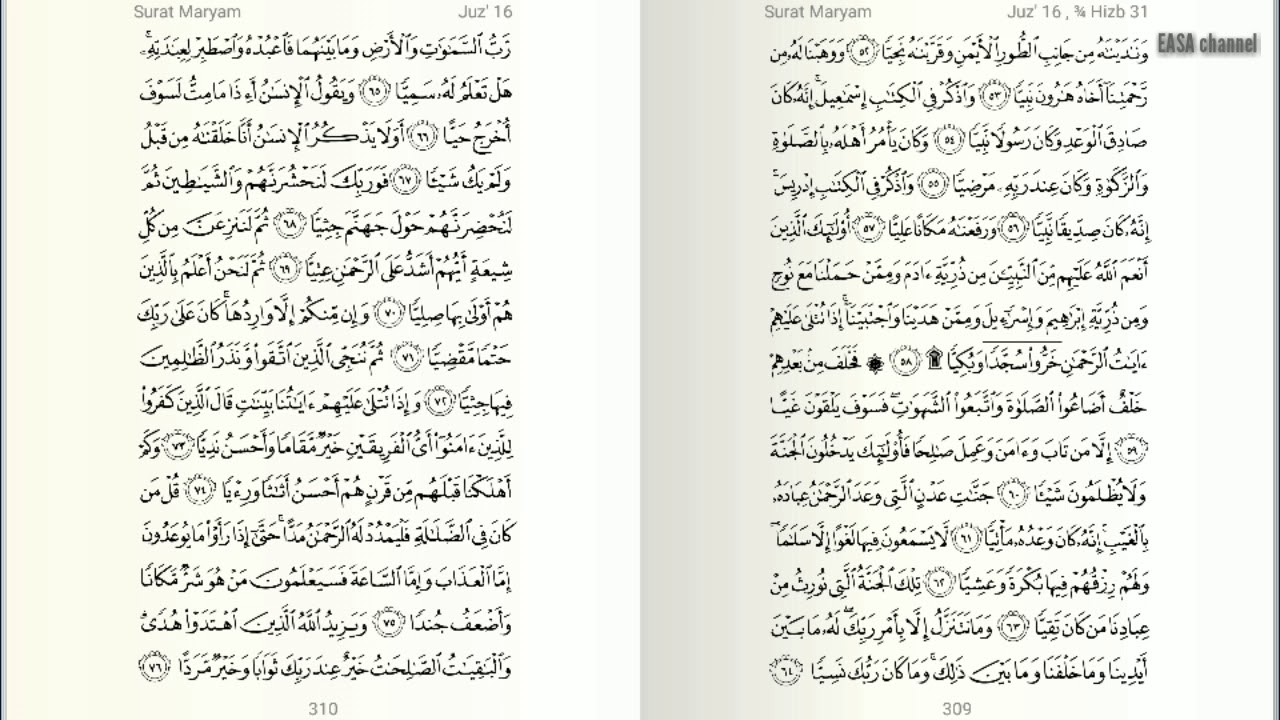 Surat Maryam Juz' 16 , ¾ Hizb 31
EASA channel
وَنَٰدَيْنَٰهُ مِن جَانِبِ ٱلطُّورِ ٱلْأَيْمَنِ وَقَرَّبْنَٰهُ نَجِيًّا ٥٢ وَوَهَبْنَا لَهُۥ مِن
رَّحْمَتِنَآ أَخَاهُ هَٰرُونَ نَبِيًّا ٥٣ وَٱذْكُرْ فِى ٱلْكِتَٰبِ إِسْمَٰعِيلَ ۚ إِنَّهُۥ كَانَ
صَادِقَ ٱلْوَعْدِ وَكَانَ رَسُولًا نَّبِيًّا ٥٤ وَكَانَ يَأْمُرُ أَهْلَهُۥ بِٱلصَّلَوٰةِ
وَٱلزَّكَوٰةِ وَكَانَ عِندَ رَبِّهِۦ مَرْضِيًّا ٥٥ وَٱذْكُرْ فِى ٱلْكِتَٰبِ إِدْرِيسَ ۚ
إِنَّهُۥ كَانَ صِدِّيقًا نَّبِيًّا ٥٦ وَرَفَعْنَٰهُ مَكَانًا عَلِيًّا ٥٧ أُو۟لَٰٓئِكَ ٱلَّذِينَ
أَنْعَمَ ٱللَّهُ عَلَيْهِم مِّنَ ٱلنَّبِيِّۦنَ مِن ذُرِّيَّةِ ءَادَمَ وَمِمَّنْ حَمَلْنَا مَعَ نُوحٍ
وَمِن ذُرِّيَّةِ إِبْرَٰهِيمَ وَإِسْرَٰٓءِيلَ وَمِمَّنْ هَدَيْنَا وَٱجْتَبَيْنَآ ۚ إِذَا تُتْلَىٰ عَلَيْهِمْ
ءَايَٰتُ ٱلرَّحْمَٰنِ خَرُّوا۟ سُجَّدًا وَبُكِيًّا ۩ ٥٨ ۞ فَخَلَفَ مِنۢ بَعْدِهِمْ
خَلْفٌ أَضَاعُوا۟ ٱلصَّلَوٰةَ وَٱتَّبَعُوا۟ ٱلشَّهَوَٰتِ ۖ فَسَوْفَ يَلْقَوْنَ غَيًّا
٥٩ إِلَّا مَن تَابَ وَءَامَنَ وَعَمِلَ صَٰلِحًا فَأُو۟لَٰٓئِكَ يَدْخُلُونَ ٱلْجَنَّةَ
وَلَا يُظْلَمُونَ شَيْـًٔا ٦٠ جَنَّٰتِ عَدْنٍ ٱلَّتِى وَعَدَ ٱلرَّحْمَٰنُ عِبَادَهُۥ
بِٱلْغَيْبِ ۚ إِنَّهُۥ كَانَ وَعْدُهُۥ مَأْتِيًّا ٦١ لَّا يَسْمَعُونَ فِيهَا لَغْوًا إِلَّا سَلَٰمًا ۖ
وَلَهُمْ رِزْقُهُمْ فِيهَا بُكْرَةً وَعَشِيًّا ٦٢ تِلْكَ ٱلْجَنَّةُ ٱلَّتِى نُورِثُ مِنْ
عِبَادِنَا مَن كَانَ تَقِيًّا ٦٣ وَمَا نَتَنَزَّلُ إِلَّا بِأَمْرِ رَبِّكَ ۖ لَهُۥ مَا بَيْنَ
أَيْدِينَا وَمَا خَلْفَنَا وَمَا بَيْنَ ذَٰلِكَ ۚ وَمَا كَانَ رَبُّكَ نَسِيًّا ٦٤
309
Surat Maryam Juz' 16
رَّبُّ ٱلسَّمَٰوَٰتِ وَٱلْأَرْضِ وَمَا بَيْنَهُمَا فَٱعْبُدْهُ وَٱصْطَبِرْ لِعِبَٰدَتِهِۦ ۚ
هَلْ تَعْلَمُ لَهُۥ سَمِيًّا ٦٥ وَيَقُولُ ٱلْإِنسَٰنُ أَءِذَا مَا مِتُّ لَسَوْفَ
أُخْرَجُ حَيًّا ٦٦ أَوَلَا يَذْكُرُ ٱلْإِنسَٰنُ أَنَّا خَلَقْنَٰهُ مِن قَبْلُ
وَلَمْ يَكُ شَيْـًٔا ٦٧ فَوَرَبِّكَ لَنَحْشُرَنَّهُمْ وَٱلشَّيَٰطِينَ ثُمَّ
لَنُحْضِرَنَّهُمْ حَوْلَ جَهَنَّمَ جِثِيًّا ٦٨ ثُمَّ لَنَنزِعَنَّ مِن كُلِّ
شِيعَةٍ أَيُّهُمْ أَشَدُّ عَلَى ٱلرَّحْمَٰنِ عِتِيًّا ٦٩ ثُمَّ لَنَحْنُ أَعْلَمُ بِٱلَّذِينَ
هُمْ أَوْلَىٰ بِهَا صِلِيًّا ٧٠ وَإِن مِّنكُمْ إِلَّا وَارِدُهَا ۚ كَانَ عَلَىٰ رَبِّكَ
حَتْمًا مَّقْضِيًّا ٧١ ثُمَّ نُنَجِّى ٱلَّذِينَ ٱتَّقَوا۟ وَّنَذَرُ ٱلظَّٰلِمِينَ
فِيهَا جِثِيًّا ٧٢ وَإِذَا تُتْلَىٰ عَلَيْهِمْ ءَايَٰتُنَا بَيِّنَٰتٍ قَالَ ٱلَّذِينَ كَفَرُوا۟
لِلَّذِينَ ءَامَنُوٓا۟ أَىُّ ٱلْفَرِيقَيْنِ خَيْرٌ مَّقَامًا وَأَحْسَنُ نَدِيًّا ٧٣ وَكَمْ
أَهْلَكْنَا قَبْلَهُم مِّن قَرْنٍ هُمْ أَحْسَنُ أَثَٰثًا وَرِءْيًا ٧٤ قُلْ مَن
كَانَ فِى ٱلضَّلَٰلَةِ فَلْيَمْدُدْ لَهُ ٱلرَّحْمَٰنُ مَدًّا ۚ حَتَّىٰٓ إِذَا رَأَوْا۟ مَا يُوعَدُونَ
إِمَّا ٱلْعَذَابَ وَإِمَّا ٱلسَّاعَةَ فَسَيَعْلَمُونَ مَنْ هُوَ شَرٌّ مَّكَانًا
وَأَضْعَفُ جُندًا ٧٥ وَيَزِيدُ ٱللَّهُ ٱلَّذِينَ ٱهْتَدَوْا۟ هُدًى ۗ
وَٱلْبَٰقِيَٰتُ ٱلصَّٰلِحَٰتُ خَيْرٌ عِندَ رَبِّكَ ثَوَابًا وَخَيْرٌ مَّرَدًّا ٧٦
310